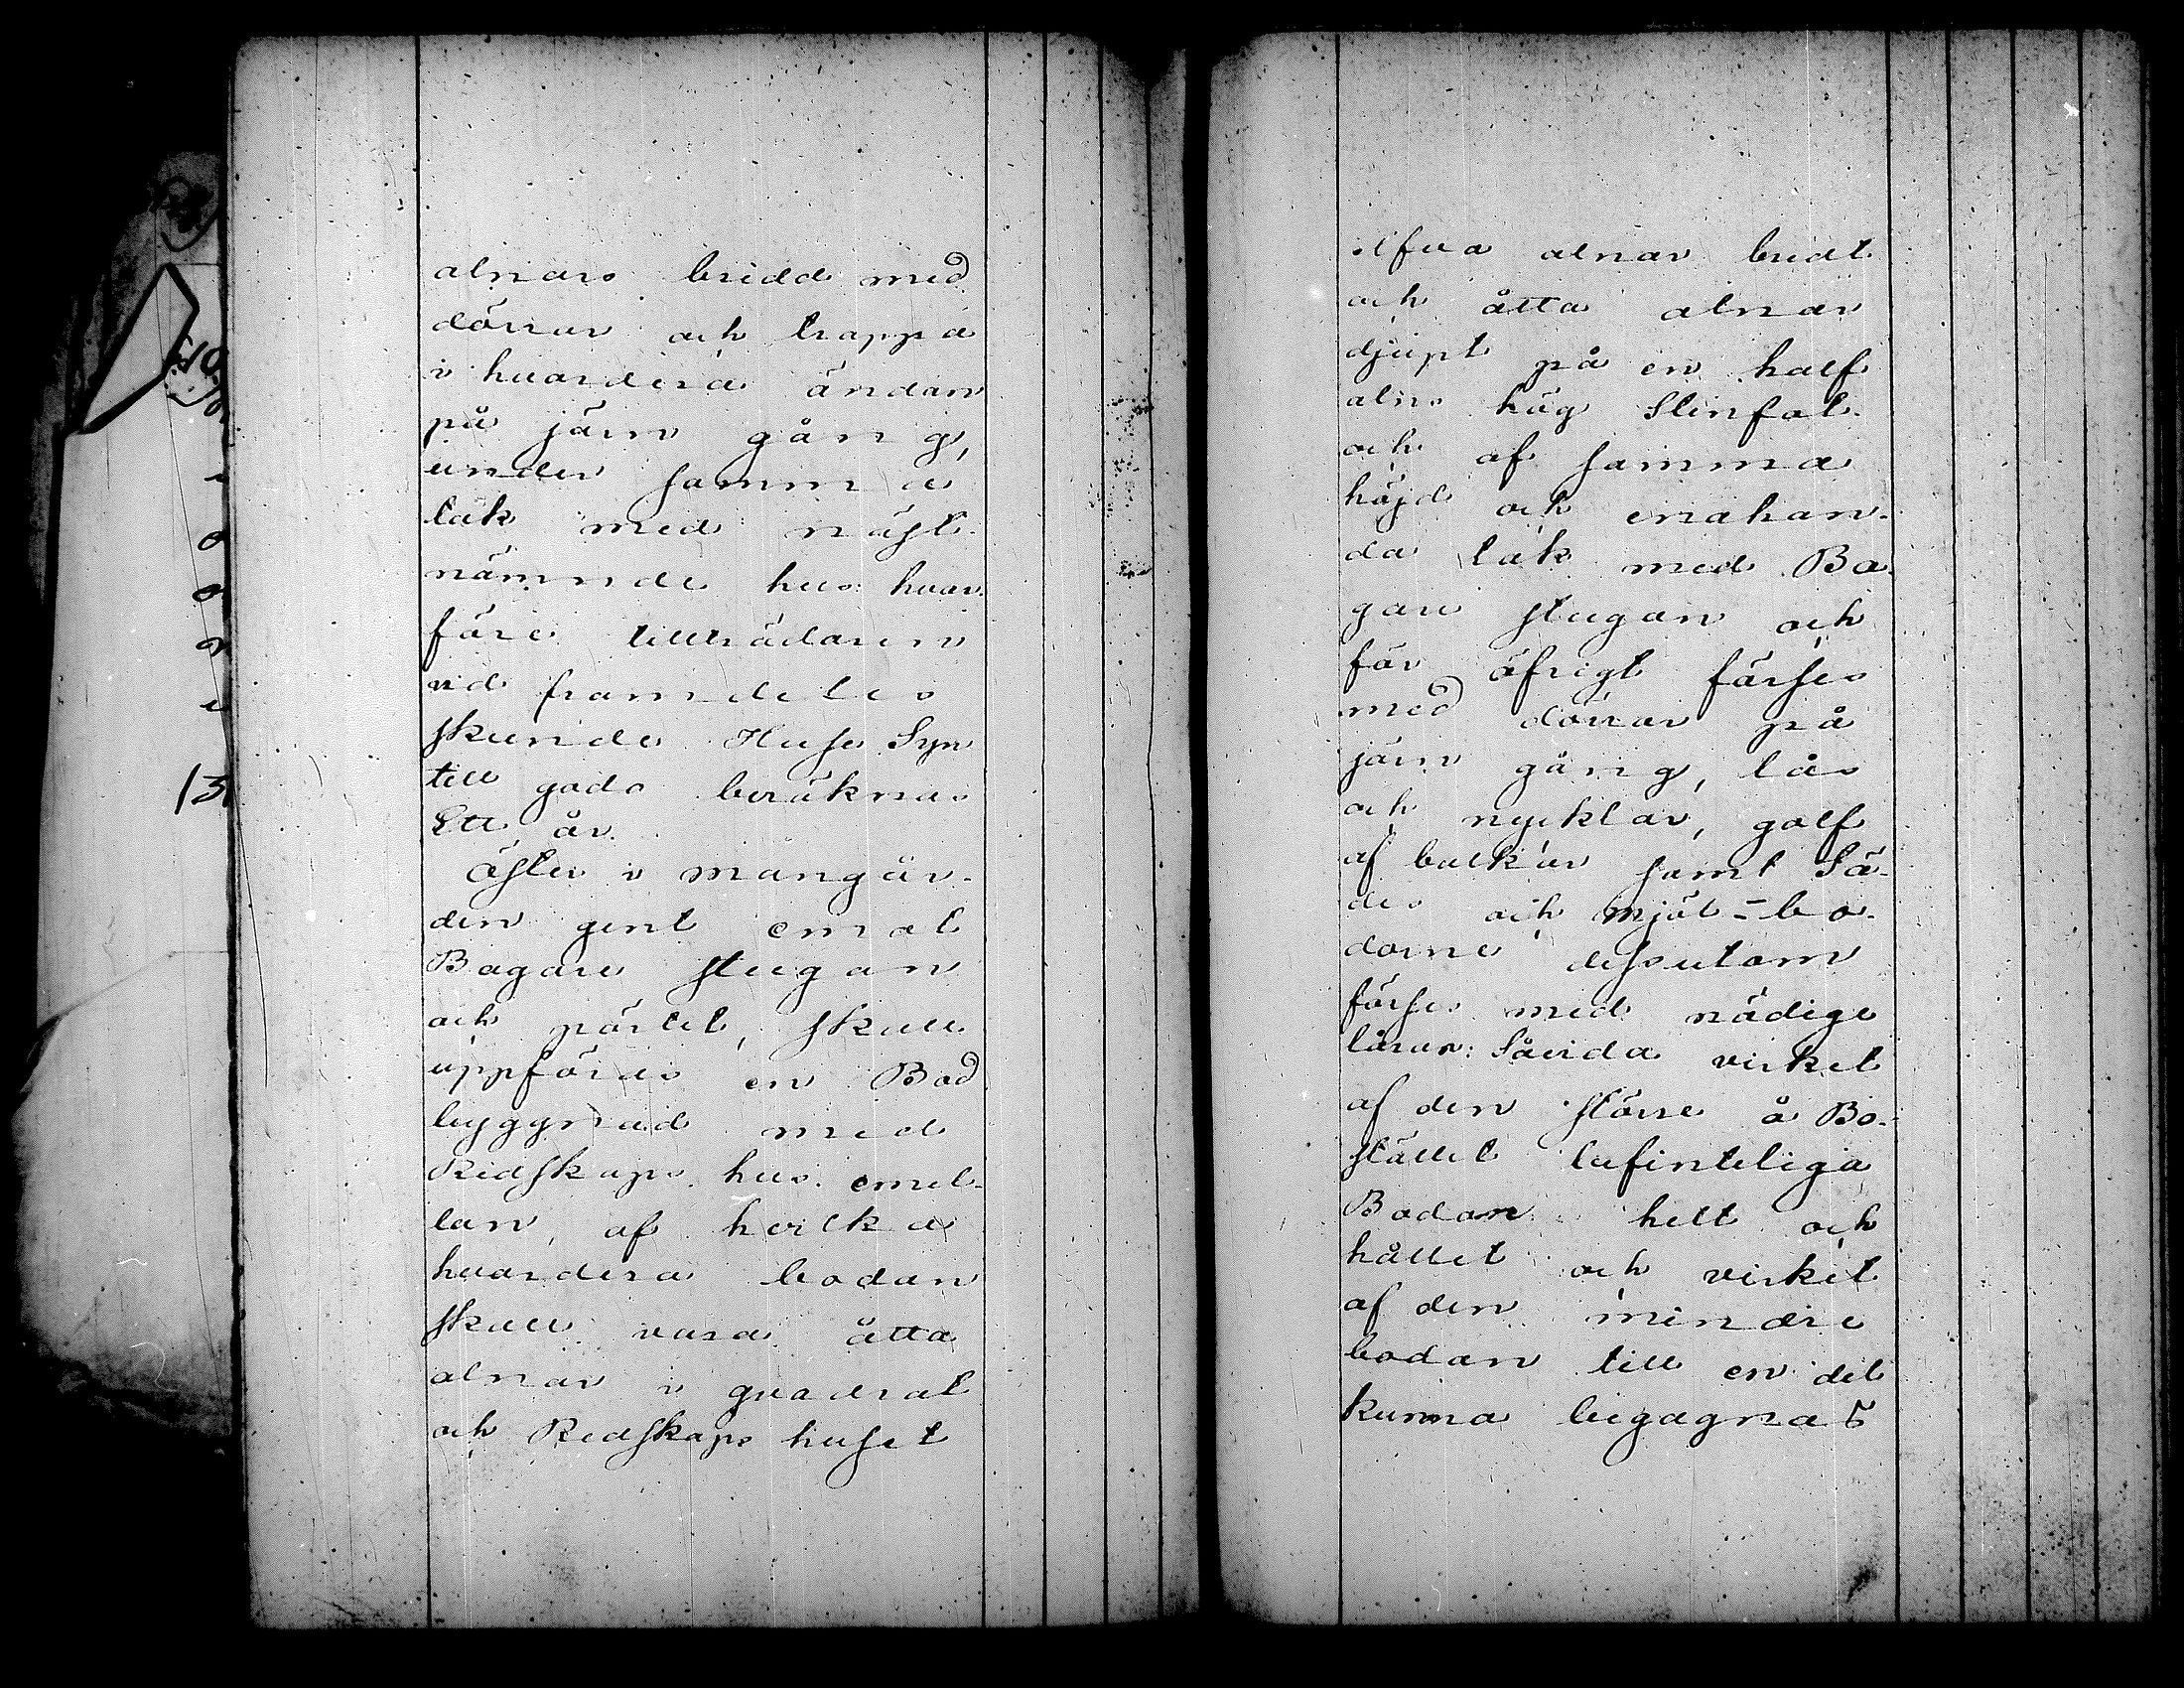 alnars bredd med
dörrar och trappa
i hvardera ändan
på järn gång,
under samma
tak med näst-
nämnde hus: hvar-
före tillträdaren
vid framdeles
skeende Huse Syn
till godo beräknas
Ett år.
Öster i mangår-
den gent emot
Bagare stugan
och pörtet, skall
uppföras en Bod
byggnad med
Redskaps hus emel-
lan, af hvilka
hvardera bodan
skall vara åtta
alnar i qvadrat
och Redskaps huset
alnar bredt
och åtta alnar
djupt på en half
alns hög Stenfot
och af samma
höjd och enahan-
da tak med Ba-
gare stugan och
för öfrigt förses
med dörrar på
järn gång, lås
och nycklar, golf
af balkar samt Sä-
des och mjöl-bo-
dorne dessutom
förses med nödige
lårar: Såvida virket
af den större å Bo-
stället befinteliga
Bodan helt och
hållet och virket
af den mindre
bodan till en del
kunna begagnas
13